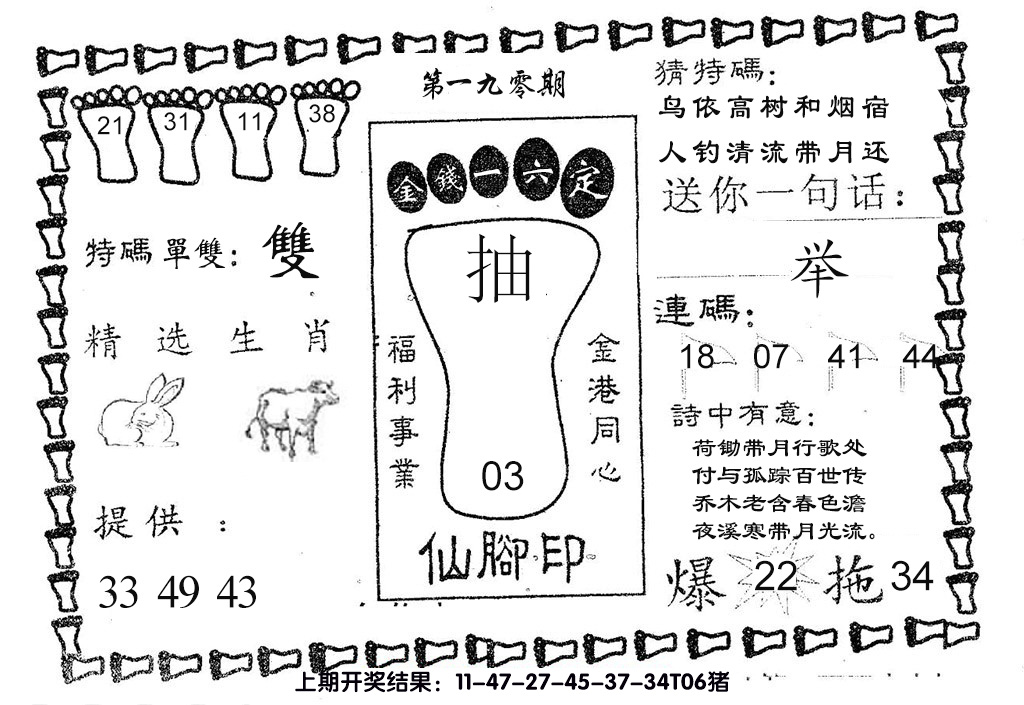 第一九零期
21 31 11 38
特碼單雙：雙
精选生肖
提供：
33 49 43
金錢一六定
抽
福利事業
金港同心
03
仙腳印
猜特碼：
鸟依高树和烟宿
人钓清流带月还
送你一句话：
举
連碼：
18 07 41 44
詩中有意：
荷锄带月行歌处
付与孤踪百世传
乔木老含春色澹
夜溪寒带月光流。
爆 22 拖 34
上期开奖结果：11-47-27-45-37-34T06猪